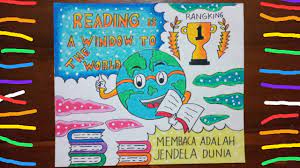 READING IS
A WINDOW TO
THE WORLD
RANGKING
1
MEMBACA ADALAH
JENDELA DUNIA